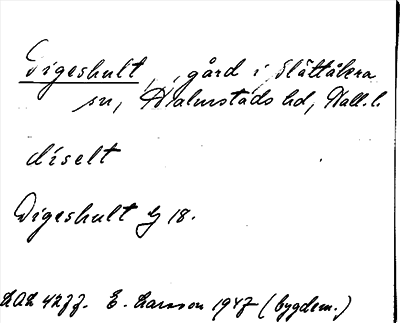 Digeshult, gård i Slättåkra
sn, Halmstads hd, Hall. l.
díselt
Digeshult Ej 18.
E. Larsson 1947 (bygdem.)